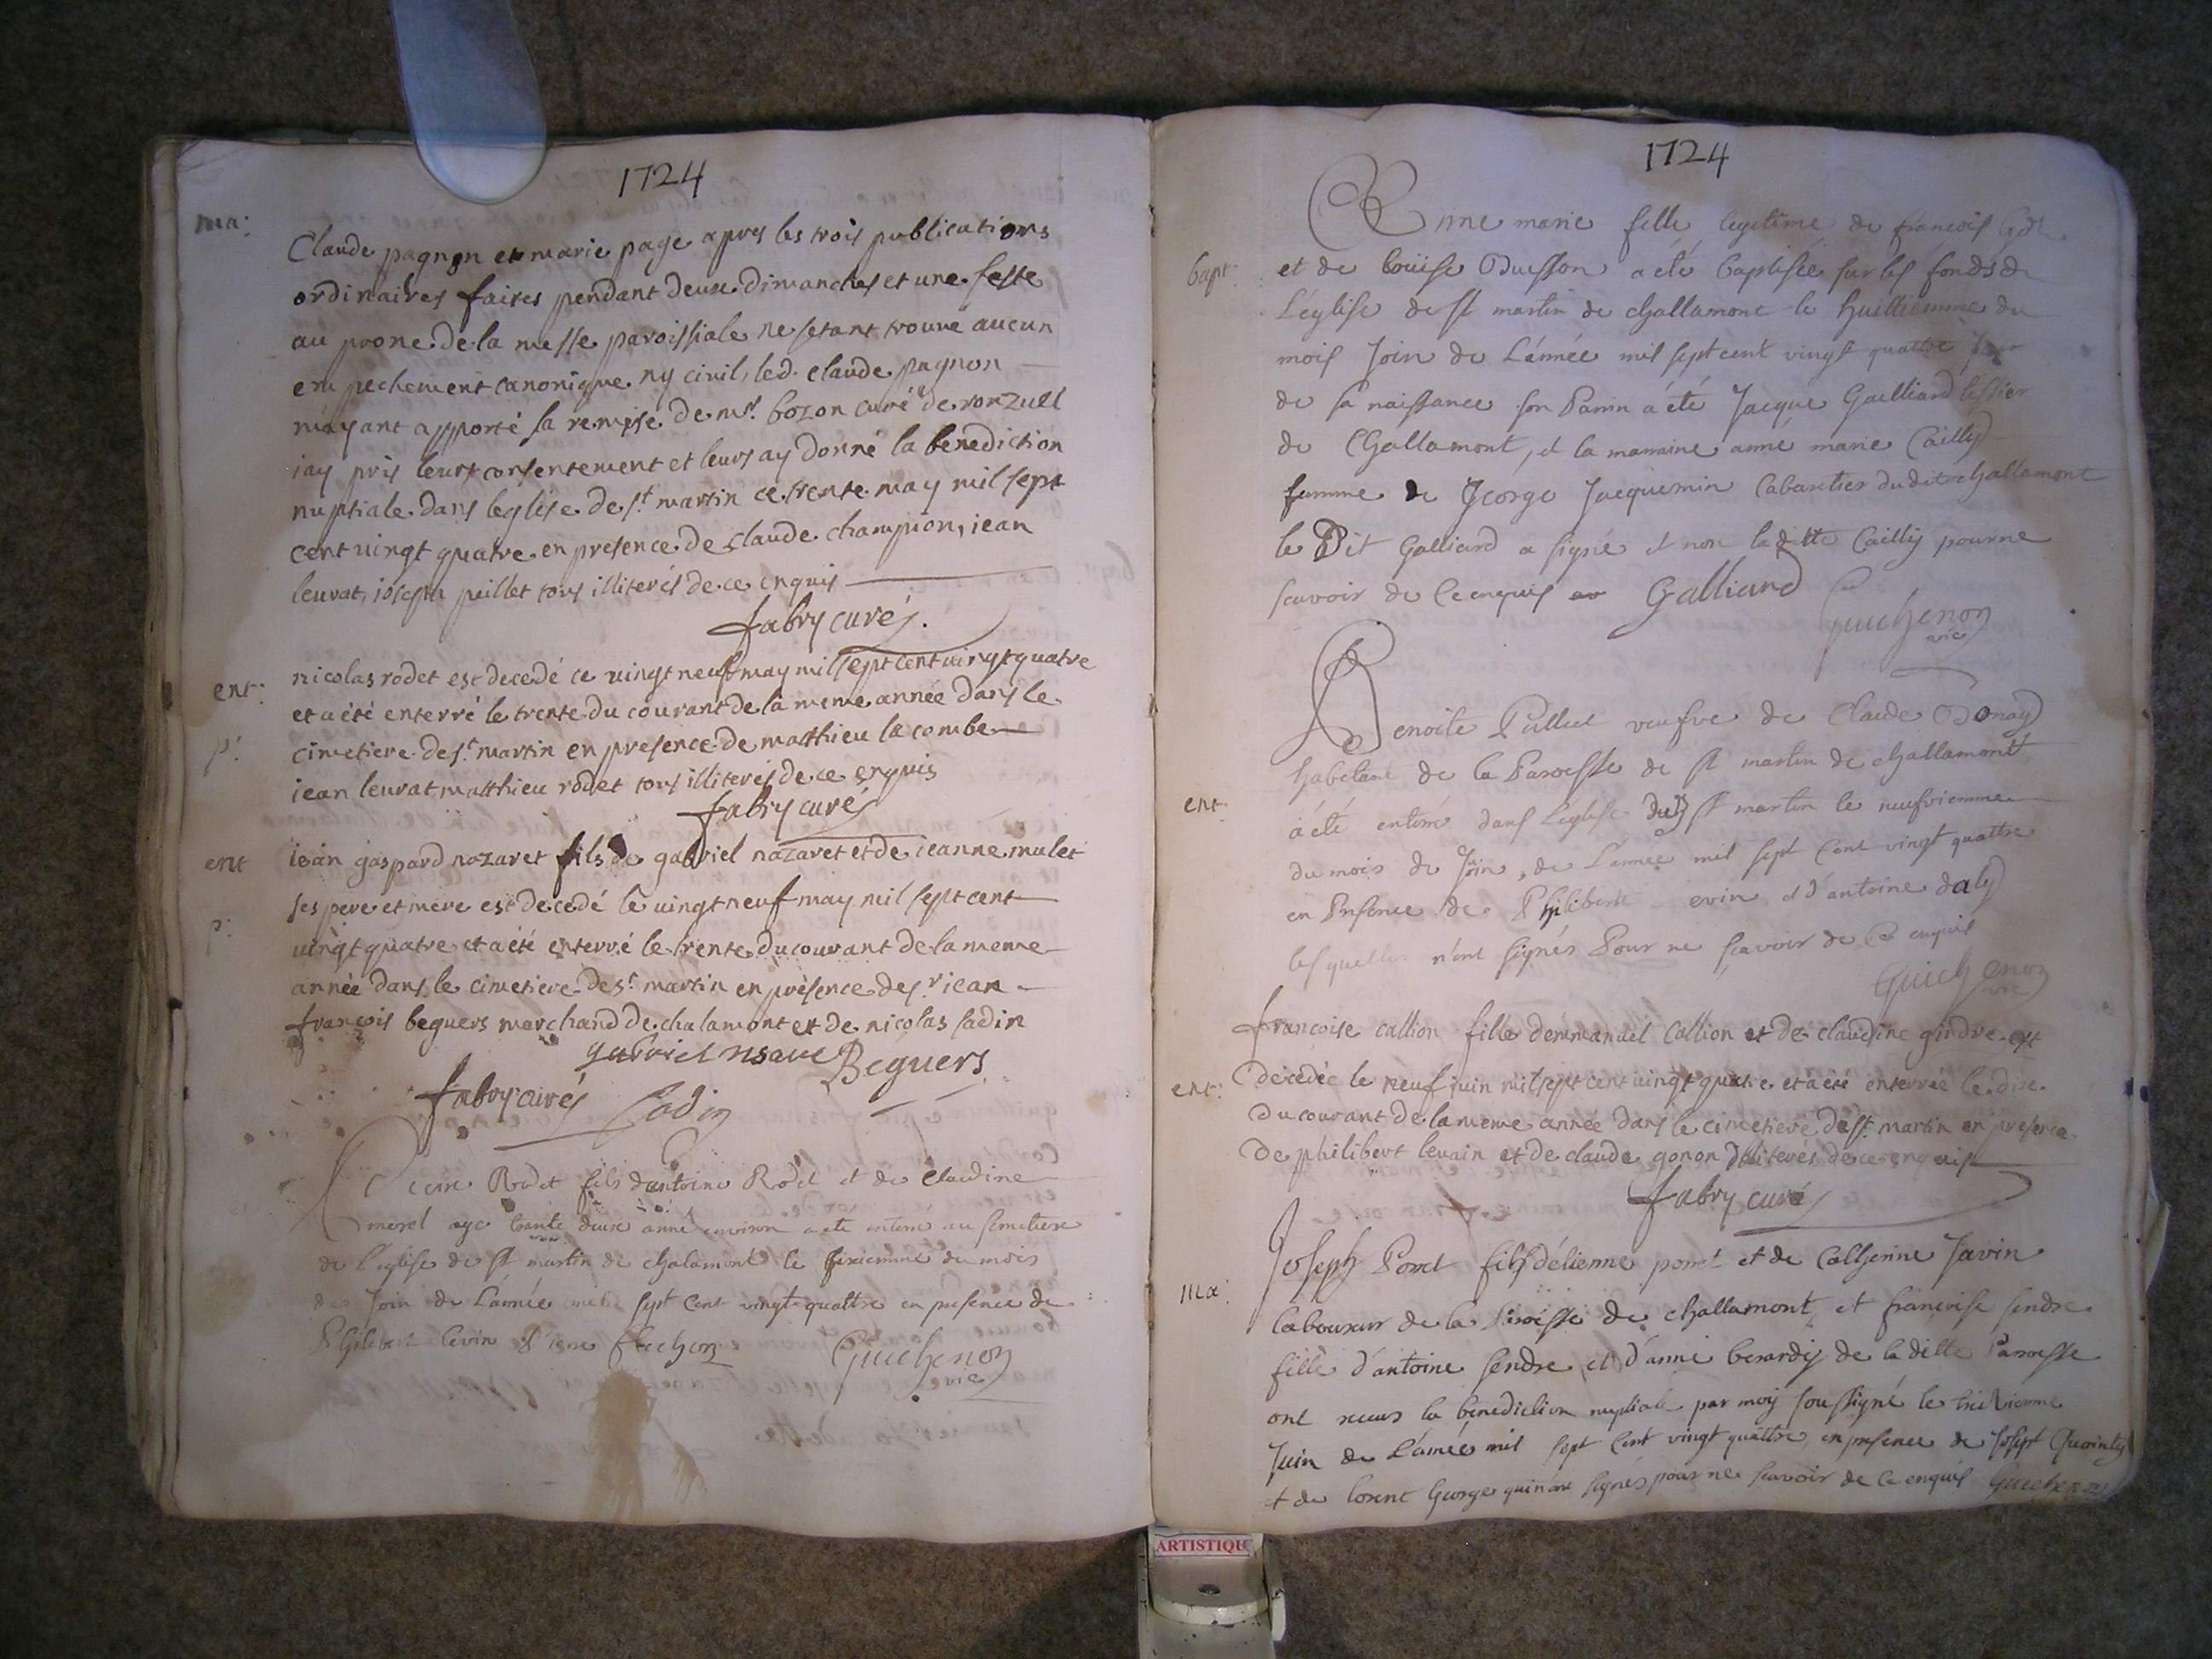 1724
ma:
Claude pagnon et marie page apres les trois publications
ordinaires faites pendant deux dimanches et une feste
au prone de la messe paroissiale ne setant trouvé aucun
empechement canonique ny civil, led. claude pagnon
m'ayant apporté sa remise de mr. bozon curé de ronzuel
iay pris leurs consentement et leurs ay donné la benediction
nuptiale dans leglise de st martin ce trente may mil sept
cent vingt quatre en presence de claude champion, iean
leurat, ioseph peillet tous illiterés de ce enquis
fabry curé.
ent:
nicolas rodet est decedé ce vingt neuf may mil sept cent vingt quatre
et a été enterré le trente du courant de la meme année dans le
p:
cimetiere de st. martin en presence de matthieu la combe
iean leurat matthieu rodet tous illiterés de ce enquis
fabry curé
ent
iean gaspard nazaret fils de gabriel nazaret et de ieanne mulet
ses pere et mere est decedé le vingt neuf may mil sept cent
p:
vingt quatre et a été enterré le trente du courant de la meme
année dans le cimetiere de st martin en présence de sr iean
francois beguers marchand de chalamont et de nicolas sadin
gabriel Beguers
fabry curé Sadin
Rodet fils dantoine Rodet et de Claudine
morel age trante deux anné environ a ete enterré au semetiere
de l'eglise de st martin de chalamont le sixiemme du mois
de Join de L'année mil sept cent vingt quattre en presence de
Philibert levin &
Guichenon
vic
1724
marie fille legitime de francois
bapt:
et de Loüise Buisson a été baptisée sur les fonds de
L'eglise de st martin de challamont le huittiemme du
mois Join de L'année mil sept cent vingt quattre
de sa naissance son Parin a été Jacque Galliard tessier
de Challamont, et la marraine anne marie Cailly
famme de George Jacquemin Cabaretier dudit challamont
le Dit Galliard a signé et non la ditte Cailly pour ne
scavoir de ce enquis Galliard
Guichenon
vic
Benoite Pillet veufve de Claude Donay
habitant de la Paroesse de st martin de challamontt
ent:
a été enterré dans L'eglise dud st martin le neufviemme
du mois de Join, de L'année mil sept Cent vingt quattre
en Presence de Philibert evin et d'antoine daly
lesquelles n'ont signés Pour ne scavoir de Ce enquis
Guichenon
vic
francoise callion fille demmanuel Callion et de claudine gindre est
ent:
decedée le neuf iuin mil sept cent vingt quatre et a été enterrée le dix
du courant de la meme année dans le cimetiere de st. martin en presence
de philibert levain et de claude gonon illiterés de ce enquis
fabry curé
Joseph Porret fils d'étienne porret et de Catherine Javin
ma:
laboureur de la Paroisse de challamont, et francoise sendre
fille d'antoine sendre et d'anne berardy de la ditte Paroesse
ont receus la benediction nuptiale par moy soussigné le
Juin de L'année mil sept Cent vingt quattre, en presence de Josept
& de lorent George qui n'ont signés pour ne scavoir de Ce enquis Guichenon
ARTISTIQU